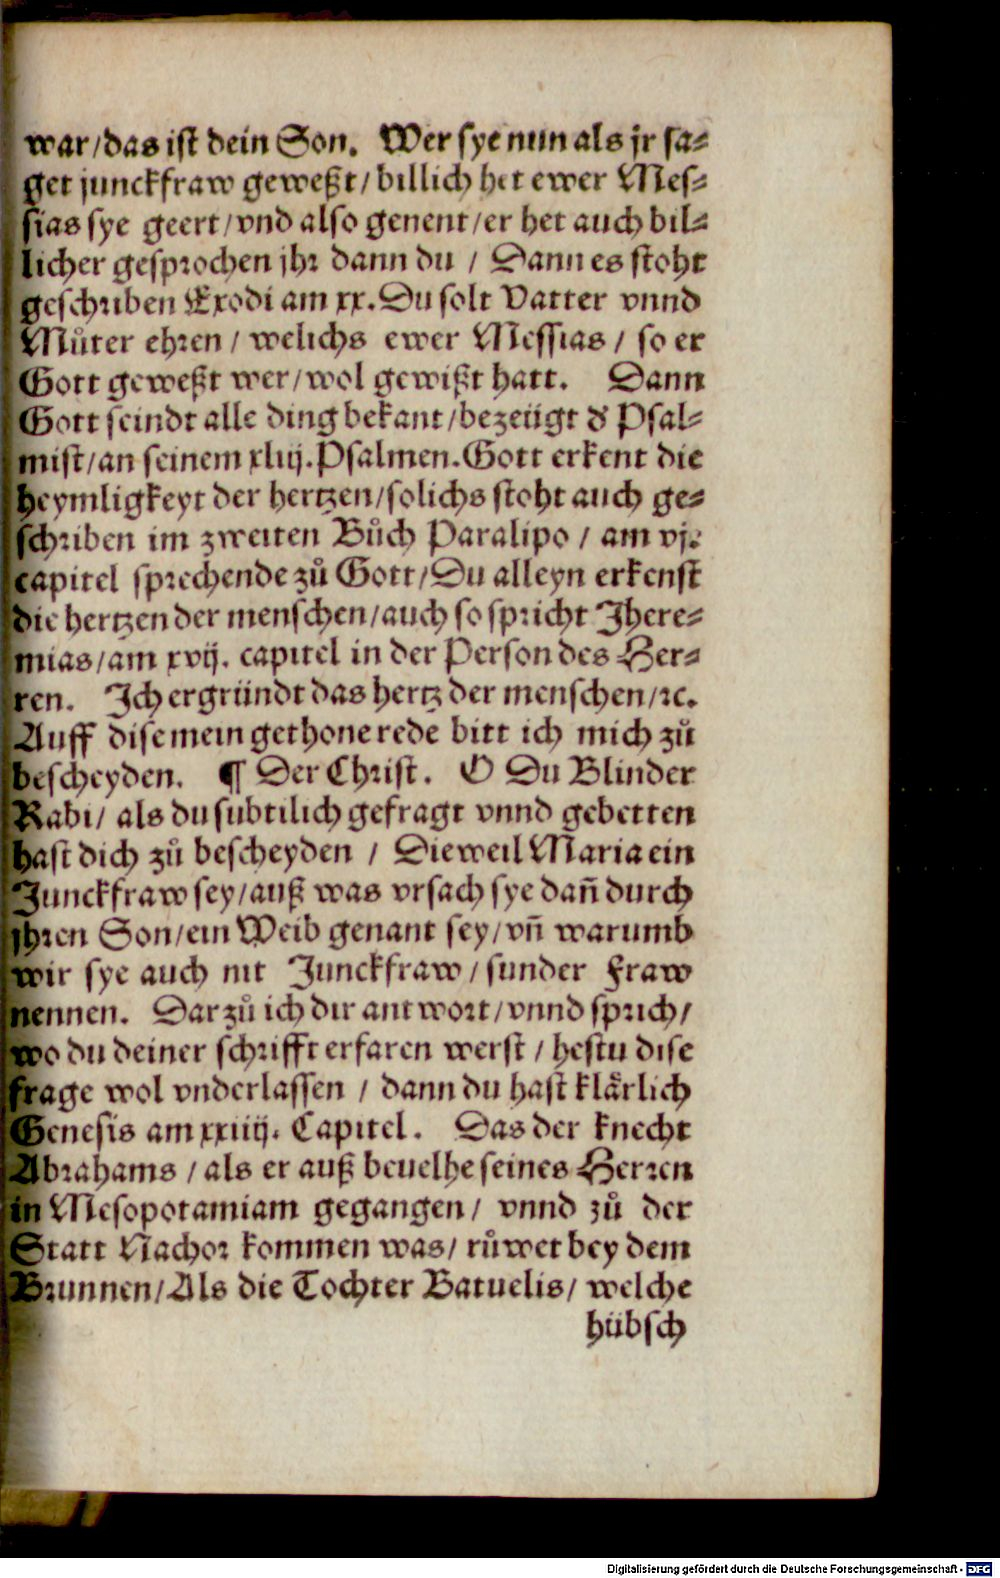 war/das ist dein Son. Wer sye nun als jr sa⸗
get junckfraw geweßt/billich het ewer Mes⸗
sias sye geert/vnd also genent/er het auch bil⸗
licher gesprochen jhr dann du / Dann es stoht
geschriben Exodi am xx. Du solt Vatter vnnd
Můter ehren / welichs ewer Messias / so er
Gott geweßt wer/wol gewißt hatt. Dann
Gott seindt alle ding bekant/bezeügt d' Psal⸗
mist/an seinem xliij. Psalmen. Gott erkent die
heymligkeyt der hertzen/solichs stoht auch ge⸗
schriben im zweiten Bůch Paralipo / am vj.
capitel sprechende zů Gott/Du alleyn erkenst
die hertzen der menschen/auch so spricht Jhere⸗
mias/am xvij. capitel in der Person des Her⸗
ren. Jch ergründt das hertz der menschen/ꝛc.
Auff dise mein gethone rede bitt ich mich zů
bescheyden. ¶ Der Christ. O Du Blinder
Rabi/ als du subtilich gefragt vnnd gebetten
hast dich zů bescheyden / Dieweil Maria ein
Junckfraw sey/auß was vrsach sye dañ durch
jhren Son/ein Weib genant sey/vñ warumb
wir sye auch nit Junckfraw / sunder Fraw
nennen. Darzů ich dir antwort/vnnd sprich/
wo du deiner schrifft erfaren werst / hestu dise
frage wol vnderlassen / dann du hast klärlich
Genesis am xxiiij. Capitel. Das der knecht
Abrahams / als er auß beuelhe seines Herren
in Mesopotamiam gegangen/ vnnd zů der
Statt Nachor kommen was/ růwet bey dem
Brunnen/Als die Tochter Batuelis/ welche
hübsch
Digitalisierung gefördert durch die Deutsche Forschungsgemeinschaft - DFG